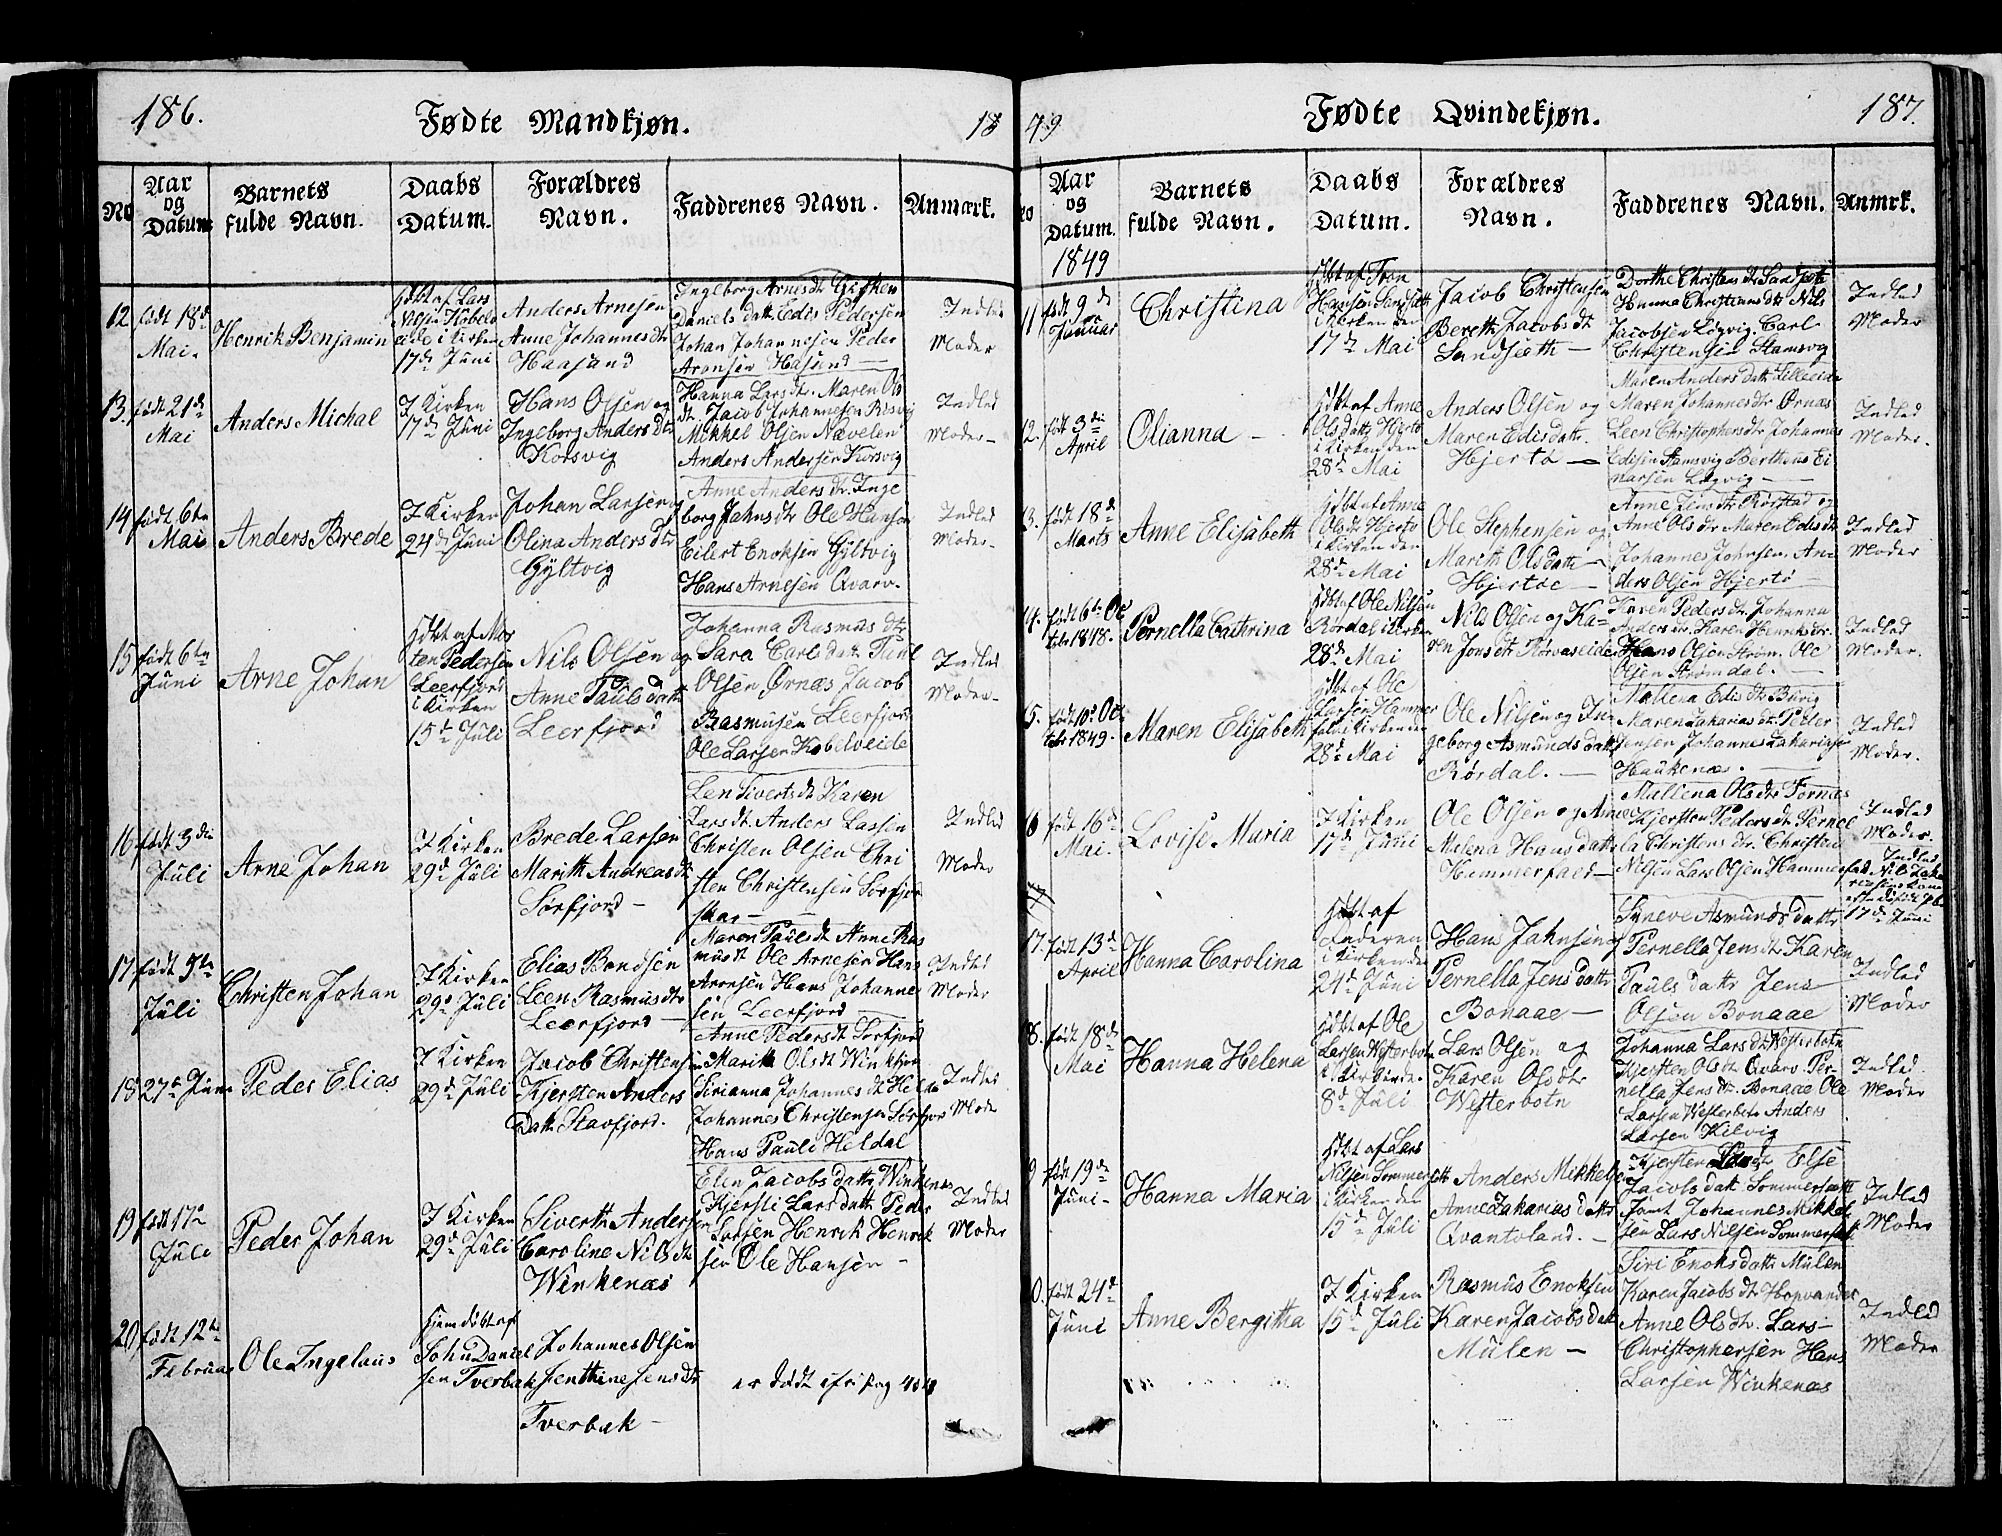 186.
Fødte Mandkjøn.
18
No
Aar
og
Datum
Barnets
fulde Navn.
Daabs
Datum.
Forældres
Navn.
Faddrenes Navn.
Anmærk.
12
født 18de
Mai.
Henrik Benjamin
hdbt af Lars
Nilsen Kobelv
eide i Kirken
17de Juni
Anders Arnesen
Anne Johannes dtr
Haasand
Ingeborg Arnesdtr
Daniels datt. Edis Pedersen
Johan Johannesen Peder
Aronsen Hasand
Indled
Moder
13.
født 21de
Mai
Anders Michal
I Kirken
17de Juni
Hans Olsen og
Ingeborg Anders dtr
Korsvig
Hanna Lars dtr. Maren Ols
dt. Jacob Johannesen Røsvig
Mikkel Olsen Nævelen
Anders Andersen Korsvig
Indled
Moder-
14
født 6te
Mai
Anders Brede
I Kirken
24de Juni
Johan Larsen og
Olina Anders dtr
Gyltvig
Anne Anders dtr. Inge
borg Jahns dtr Ole Hanson
Eilert Enoksen Gyltvig
Hans Arnesen Qvarv-
Indled
Moder-
15
født 6te
Juni
Arne Johan
hdbt af Mor
ten Pedersen
Leerfjord
i Kirken
15de Juli
Nils Olsen og
Anne Pauls datt
Leerfjord
Johanna Rasmus dtr
Sara Carls datt Paul
Olsen Ørnæs Jacob
Rasmusen Leerfjord
Ole Larsen Kobelveide
Indled
Moder-
16
født 3die
Juli
Arne Johan
I Kirken
29de Juli
Brede Larsen
Marith Andreas dt
Sørfjord -
Len Siverts dt Karen
Lars dt. Anders Lassen
Christen Olsen Chri
sten Christensen Sørfjor
skar -
Indled
Moder
17
født 5te
Juli
Christen Johan
I Kirken
29de Juli
Elias Bendsen
Leen Rasmus dtr
Leerfjord -
Maren Pauls dt Anne Ras
mus dt Ole Arnesen Hans
Aronsen Hans Johanne
sen Leerfjord
Indled
Moder
18
27de Juni
Peder Elias
I Kirken
29de Juli
Jacob Christensen
Kjersten Anders
Datt. Stavfjord.
Anne Peders dt Sørfjord
Marith Ols dt Winkfjor
Sirianna Johannes dt Heldal
Johannes Christensen Sørfjor
Hans Pauli Heldal
Indled
Mode
19
født 17de
Juli
Peder Johan
I Kirken
29de Juli
Siverth Andersen
Caroline Nils dt
Winkenæs
Elen Jacobs datt Winkenæs
Kjersti Lars datt Peder
Larsen Henrik Henrik
sen Ole Hansen -
Indled
Moder
20
født 12te
Februar
Ole Ingelaus
hjemdøbt af
John Daniel
sen Tverbak
Johannes Olsen
Tverbak -
er dødt
pag 404
79
Fødte Qvindekjøn.
187.
No
Aar
og
Datum.
1849
Barnets
fulde Navn.
Daabs
Datum.
Forældres
Navn.
Faddrenes Navn.
Anmrk.
11
født 9de
Januar
Christina
hdbt af
Hansen Sandsæth
i Kirken den
17de Mai
Jacob Christensen
Bereth Jacobs dt
Sandsæth -
Dorthe Christens dtr Sandsæth
Hanna Christians dtr Nils
Jacobsen Løgvig Carl
Christensen Stamsvig
Indled
Moder
12.
født 3die
April
Olianna -
hdbt af Anne
Ols datt Hjertø
i Kirken den
28de Mai
Anders Olsen og
Maren Edis datt.
Hjertø -
Maren Anders datt Lilleeide
Maren Johannes dtr Ørnæs
Leen Christophers dtr Johannes
Edisen Stamsvig Bertheus Ei
narsen Løgvig -
Indled
Moder.
13.
født 18de
Marts
Anne Elisabeth
hdbt af Anne
Ols dt Hjertø
i Kirken den
28de Mai
Ole Stephensen og
Marith Ols datt
Hjertøe -
Anne Jens dtr Rørstad og
Anne Ols dtr Maren Edis dt
Johannes Johnsen. An
ders Olsen Hjertø
Indled
Moder
14.
født 6te Oc
tobr 1848.
Pernella Cathrina
hdbt af Ole Nilsen
Rørdal i Kirken
28de Mai
Nils Olsen og Ka-
ren Jons dt Rørvaseide
Karen Peders dtr. Johanna
Anders dtr. Karen Henriks dtr.
Hans Olsen Strøm. Ole
Olsen Strømdal. -
Indled
Moder.
15.
født 10de Oc
tobr 1849.
Maren Elisabeth
hdbt af Ole
Larsen Hammer
fald i Kirken den
28de Mai
Ole Nilsen og In
geborg Asmunds datt
Rørdal. -
Mallena Edis dtr Børig
Maren Zakarias dtr. Peder
Jensen Johannes Zakariasen
Haukenæs. -
Indled
Moder.
16
født 16de
Mai.
Lovise Maria
I Kirken
17de Juni
Ole Olsen og Anne
Melena Hans datt
Hammerfald -
Mallena Ols dtr Fornæs
Kjersten Peders dt Pernel
la Christens dtr. Christen
Nilsen Lars Olsen Hammer
Indled
Moder.
17de Juni
17.
født 13de
April
Hanna Carolina
hdbt af
i Kirken den
24de Juni
Hans Jahnsen og
Pernella Jens datt
Bonaae -
Synneve Asmunds datt
Pernella Jens dt Karen
Pauls datt Jens
Olsen Bonaae
Indled
Moder
18.
født 18de
Mai
Hanna Helena
hdbt af Ole
Larsen Westerbotn
i Kirken de.
8de Juli
Lars Olsen og
Karen Ols dtr
Westerbotn
Johanna Lars dt Westerbotn
Kjersten Ols dt Qvarv. Per-
nella Jens dtr. Bonaae Ole
Larsen Westerbotn Anders
Larsen Kilvig
Indled.
Moder
19
født 19de
Juni -
Hanna Maria
hdbt af Lars
Nilsen Sommersæth
i Kirken den
15de Juli
Anders Mikkelsen
Anne Zakarias datt
Qvantoland. -
Kjersten Lars dt Else
Jacobs datt Sommersæth
samt Johannes Mikkel
sen Lars Nilsen Sommersæth
Indled
Moder
20.
født 24de
Juni
Anne Bergitha
I Kirken
15de Juli
Rasmus Enoksen
Karen Jacobs datt
Mulen -
Siri Enoks datt Mulen
Karen Jacobs dt Hopvandet
Anne Ols dtr. Lars
Christophersen Hans
Larsen Winkenæs
Indled
Moder